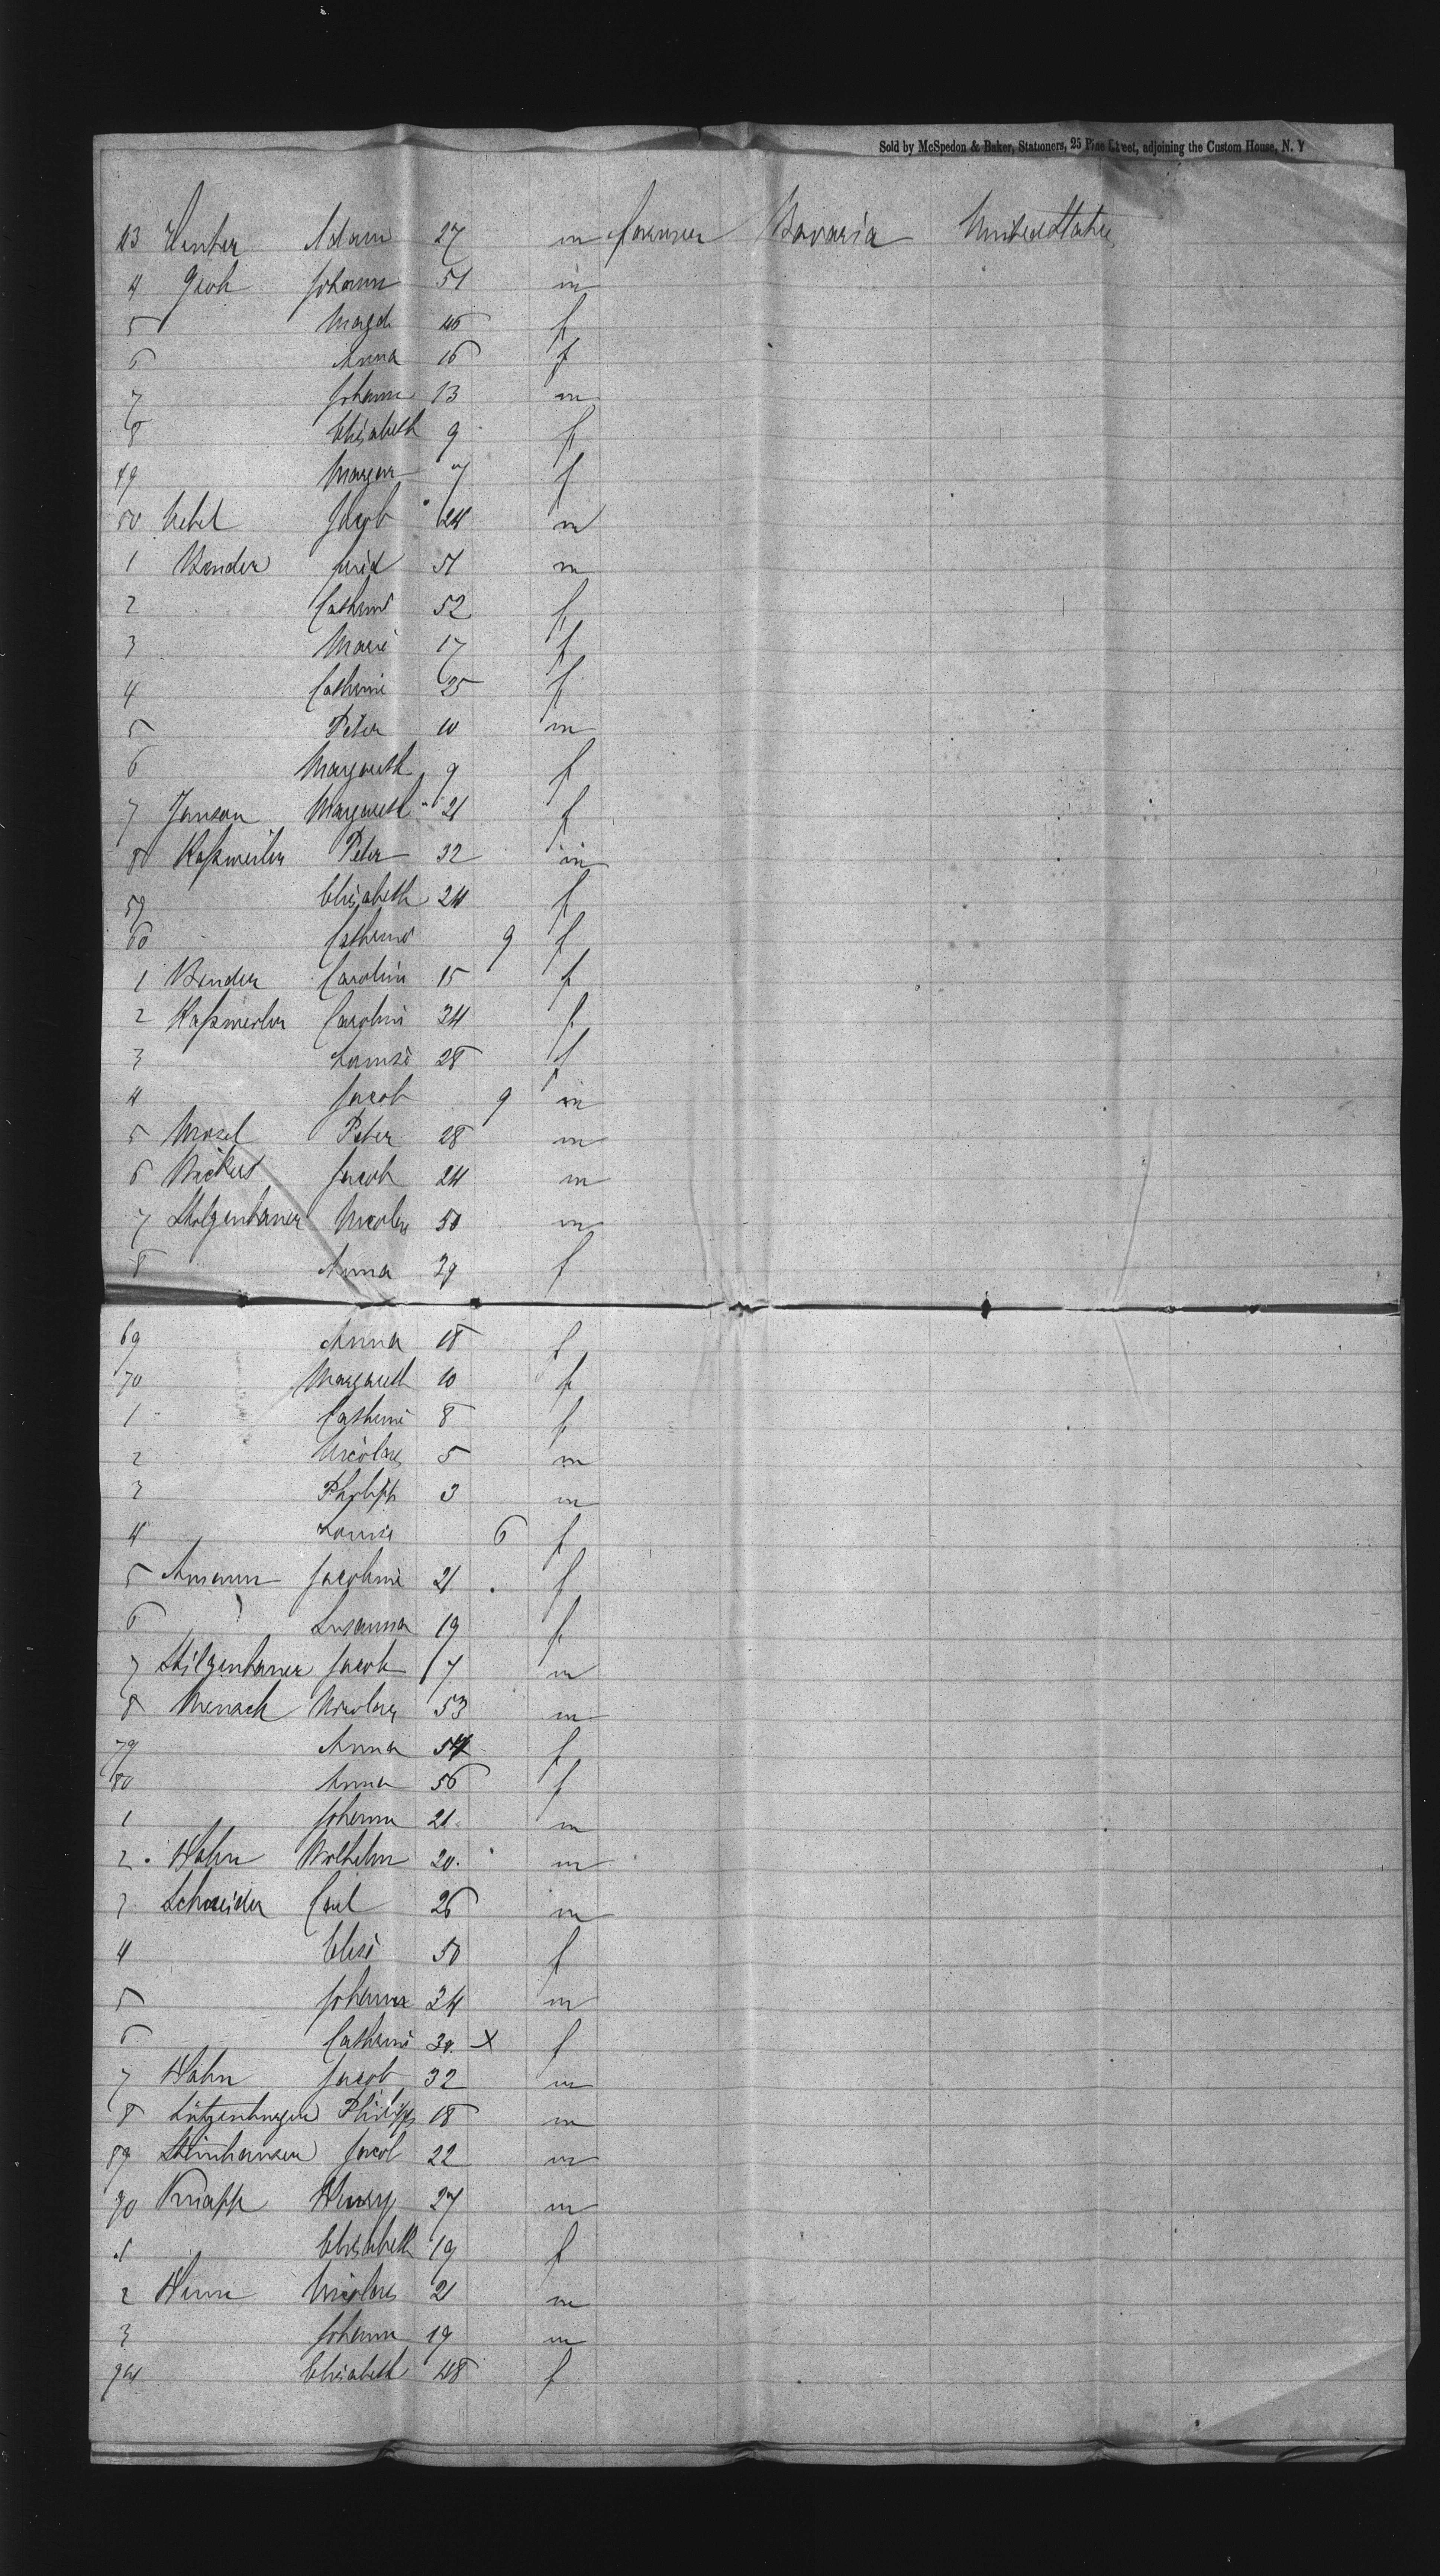 Sold by McSpedon & Baker, Stationers, 25 Pine Street, adjoining the Custom House, N. Y
43 Adam 27 m farmer Bavaria United States
4 Groh Johann 51 m
5 Magd 46 f
6 Anna 16 f
7 Johann 13 m
8 Elisabeth 9 f
49 Margar 7 f
50 Jacob 24 m
1 Bender 51 m
2 Catherine 52 f
3 Marie 17 f
4 Catherine 25 f
5 Peter 10 m
6 Margareth 9 f
7 Janson Margareth 21 f
8 Peter 32 m
59 Elisabeth 24 f
60 Catherine 9 f
1 Bender Caroline 15 f
2 Caroline 34 f
3 Louise 28 f
4 Jacob 9 m
5 Mosel Peter 28 m
6 Jacob 24 m
7 Nicolas 50 m
8 Anna 39 f
69 Anna 18 f
70 Margareth 10 f
1 Catherine 8 f
2 Nicolas 5 m
3 Philipp 3 m
4 Louise 6 f
5 Amann Jacobine 21 f
6 Susanna 19 f
7 Jacob 17 m
8 Nicolas 53 m
79 Anna f
80 Anna 56 f
1 Johann 21 m
2 Hahn Wilhelm 20 m
3 Schneider Carl 26 m
4 Elise 50 f
5 Johann 24 m
6 Catherine 30 x f
7 Hahn Jacob 32 m
8 Philipp 18 m
89 Steinhauser Jacob 22 m
90 Knapp Henry 27 m
1 Elisabeth 19 f
2 Nicolas 21 m
3 Johann 19 m
94 Elisabeth 48 f